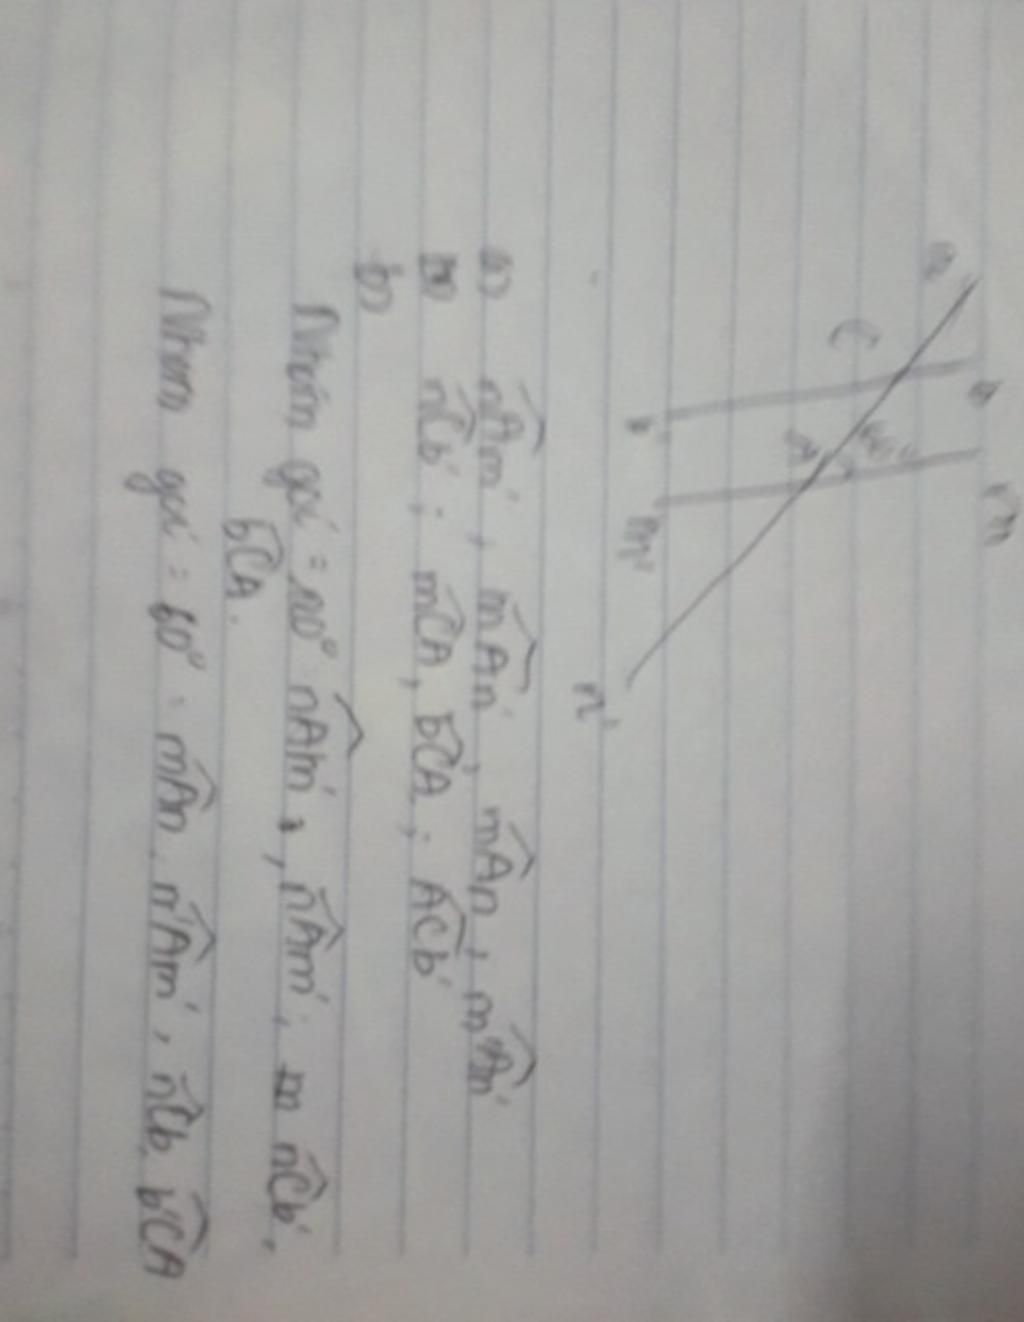 n
b
m
C
60°
A
b'
m'
n'
a) nAm', mAn', mAn, m'An'
nCb'; mCA, bCA; ACb'
b)
Nhóm góc = 120° nAm', nAm'; nCb',
bCA.
Nhóm góc = 60° = mAn, n'Am', nCb, b'CA